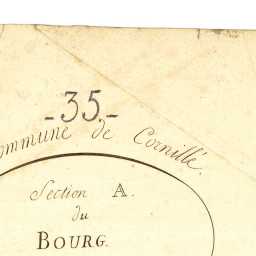 -35-
Commune de Cornillé.
Section A.
du
BOURG.